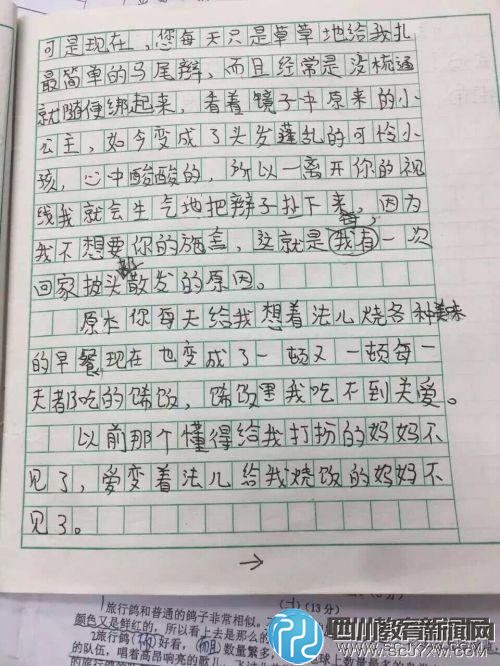 可是现在，您每天只是草草地给我扎
最简单的马尾辫，而且经常是没梳通
就随便绑起来，看着镜子中原来的小
公主，如今变成了头发蓬乱的可怜小
孩，心中酸酸的，所以一离开你的视
线我就会生气地把辫子扯下来，因为
我不想要你的施舍，这就是我有一次
回家披头散发的原因。
原本你每天给我想着法儿烧各种美味
的早餐现在也变成了一顿又一顿每一
天都吃的馊饭，馊饭里我吃不到关爱。
以前那个懂得给我打扮的妈妈不
见了，爱变着法儿给我烧饭的妈妈不
见了。
→
(一)(13分)
旅行鸽和普通的鸽子非常相似。
颜色又是鲜红的，所以看上去是那么的
2旅行鸽 好看， 数量繁多
的队伍，唱着高昂响亮的歌儿，
四川教育新闻网
WWW.SCJYXW.COM